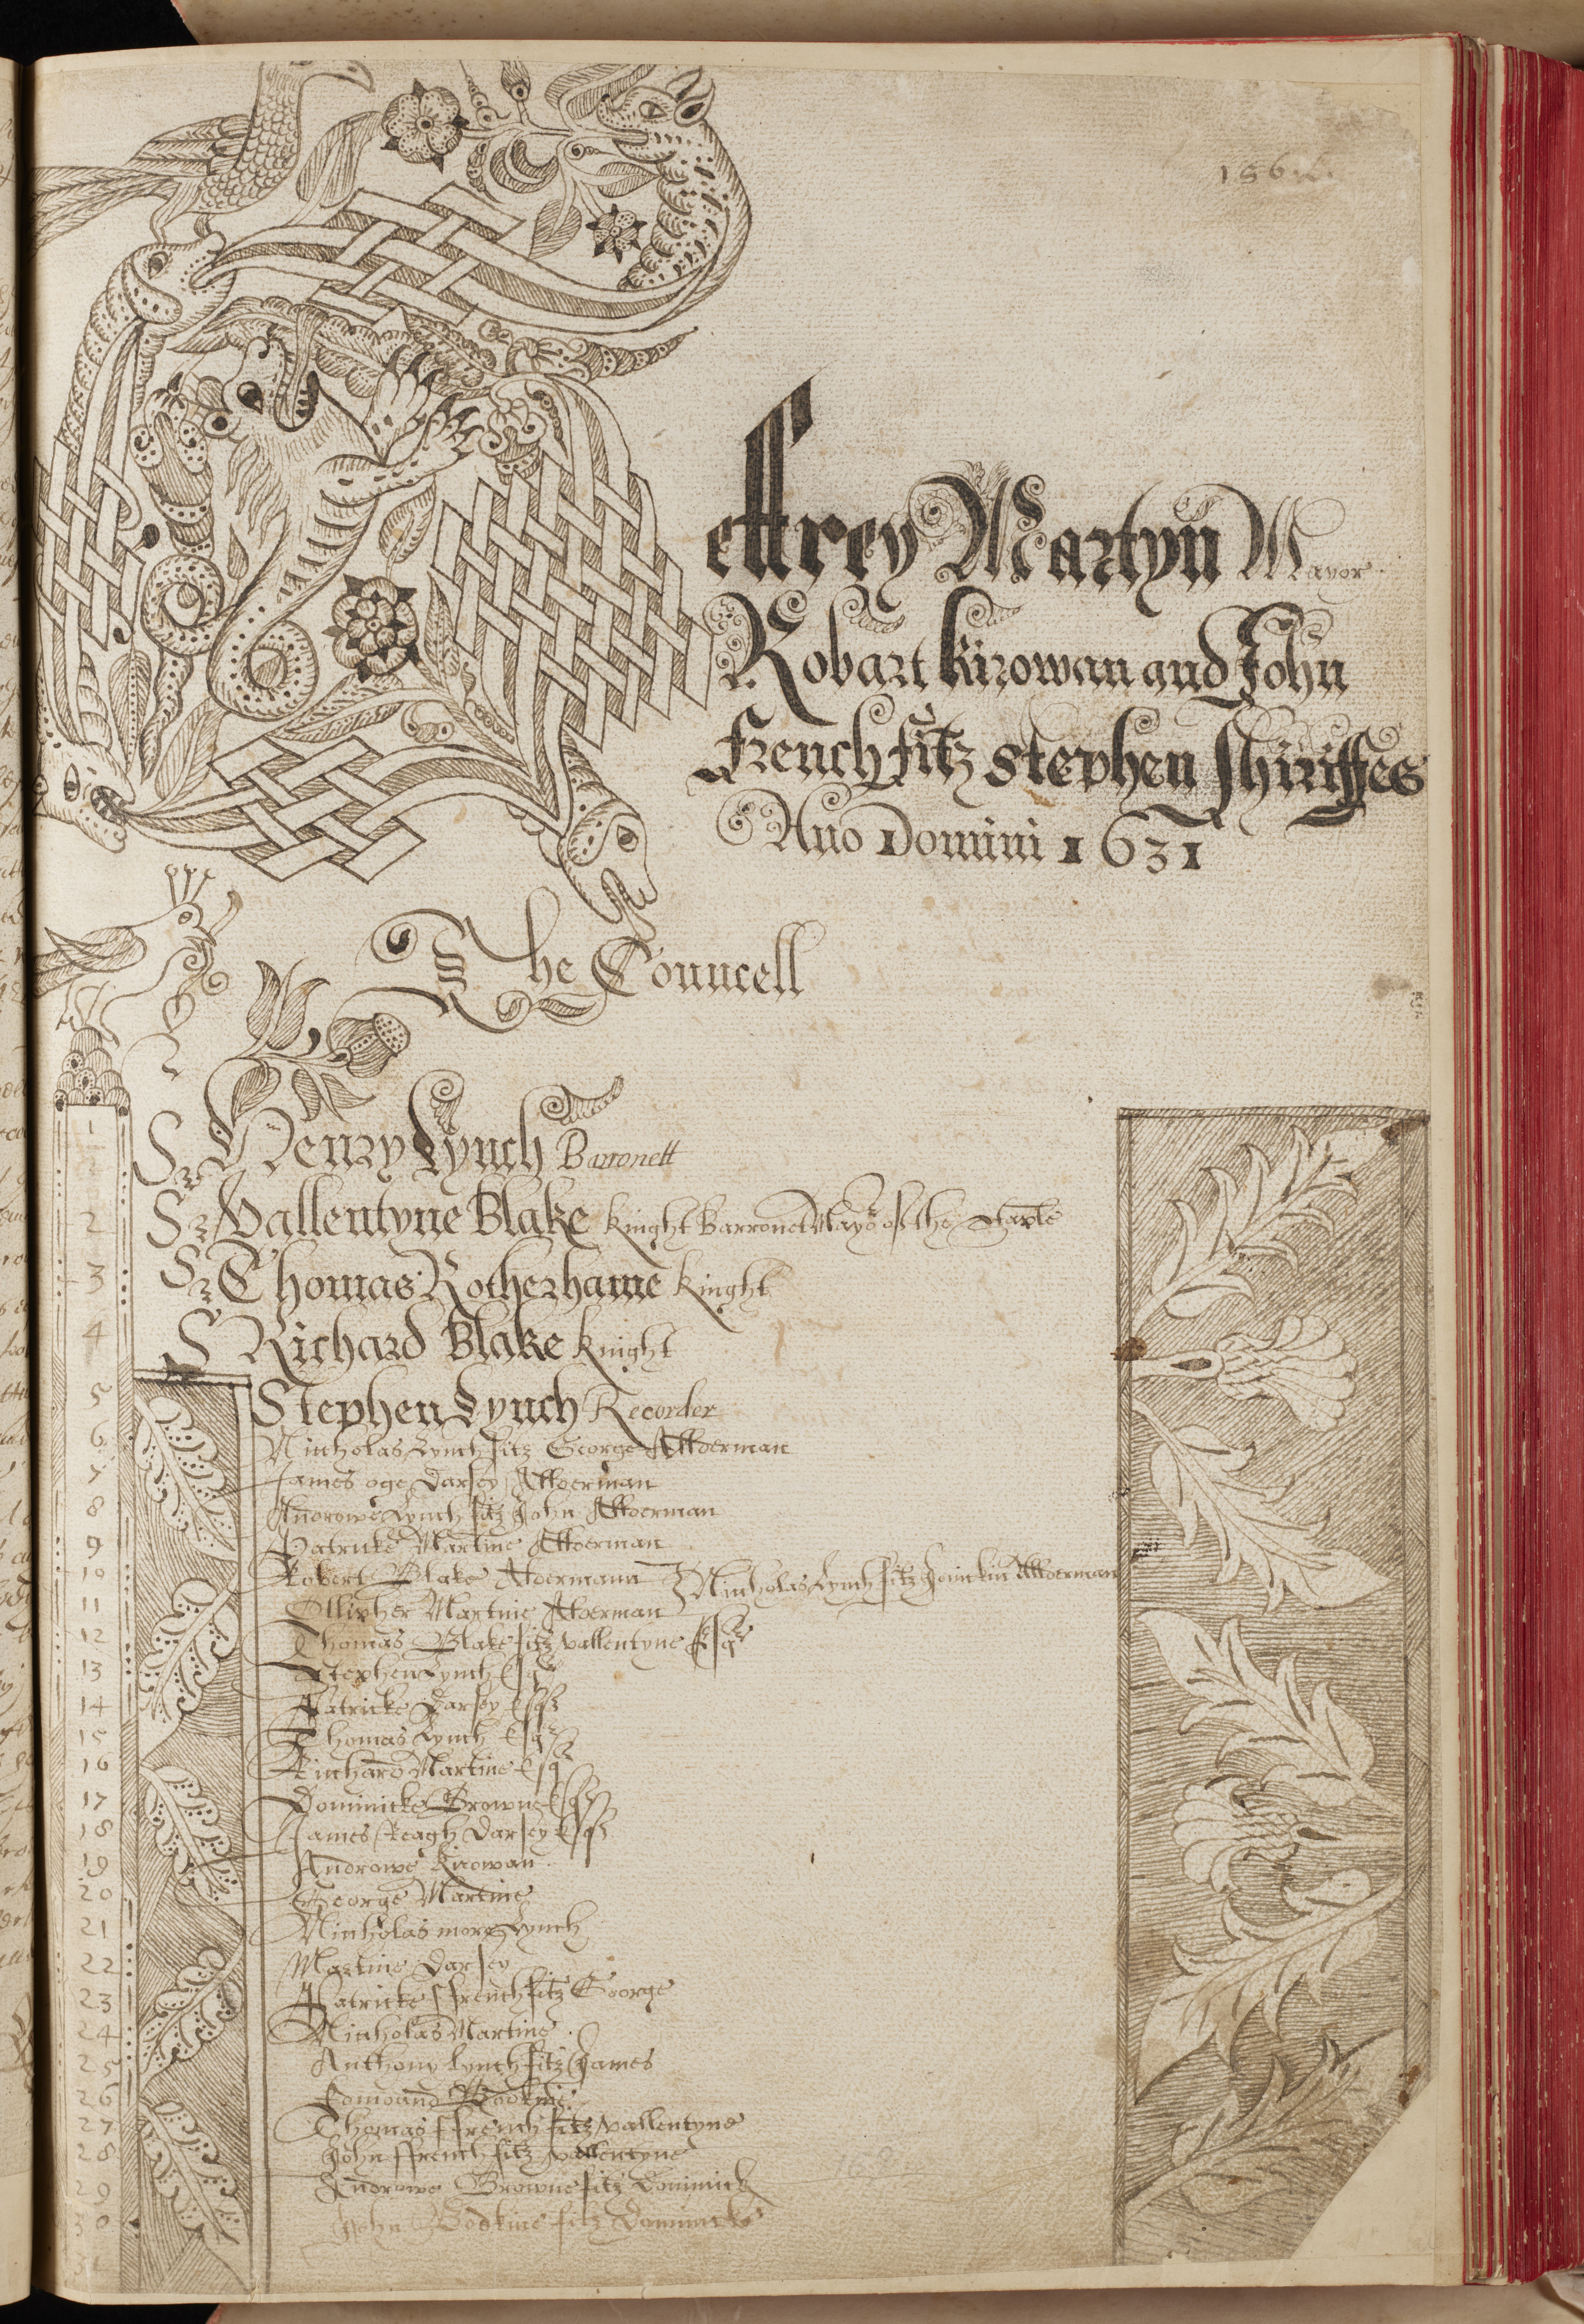 effrey Martyn Mayor
Robart Kirowan and John
French fitz Stephen Shiriffes
Ano Domini 1631
The Councell
1 Sr Henry Lynch Barronett
2 Sr Vallentyne Blake Knight Barronet Mayor of the Staple
3 Sr Thomas Rotherhame Knight
4 Sr Richard Blake Knight
5 Stephen Lynch Recorder
6 Nicholas Lynch fitz George Alderman
7 James oge Darsey Alderman
8 Androwe Lynch fitz John Alderman
9 Patricke Martine Alderman
10 Robert Blake Aldermann Nicholas Lynch fitz Jonickin Alderman
11 Olliver Martine Alderman
12 Thomas Blake fitz vallentyne Esqr
13 Stephen Lynch Esqr
14 Patricke Darsey Esqr
15 Thomas Lynch Esqr
16 Richard Martine Esqr
17 Dominicke Browne Esqr
18 James Reagh Darsey Esqr
19 Androwe Kirowan
20 George Martine
21 Nicholas more Lynch
22 Martine Darsey
23 Patricke ffrench fitz George
24 Nicholas Martine
25 Anthony Lynch fitz James
26 Edmound Bodkin
27 Thomas ffrench fitz vallentyne
28 John ffrench fitz vallentyne
29 Androwe Browne fitz Dominick
30 John Bodkine fitz Dominicke
31